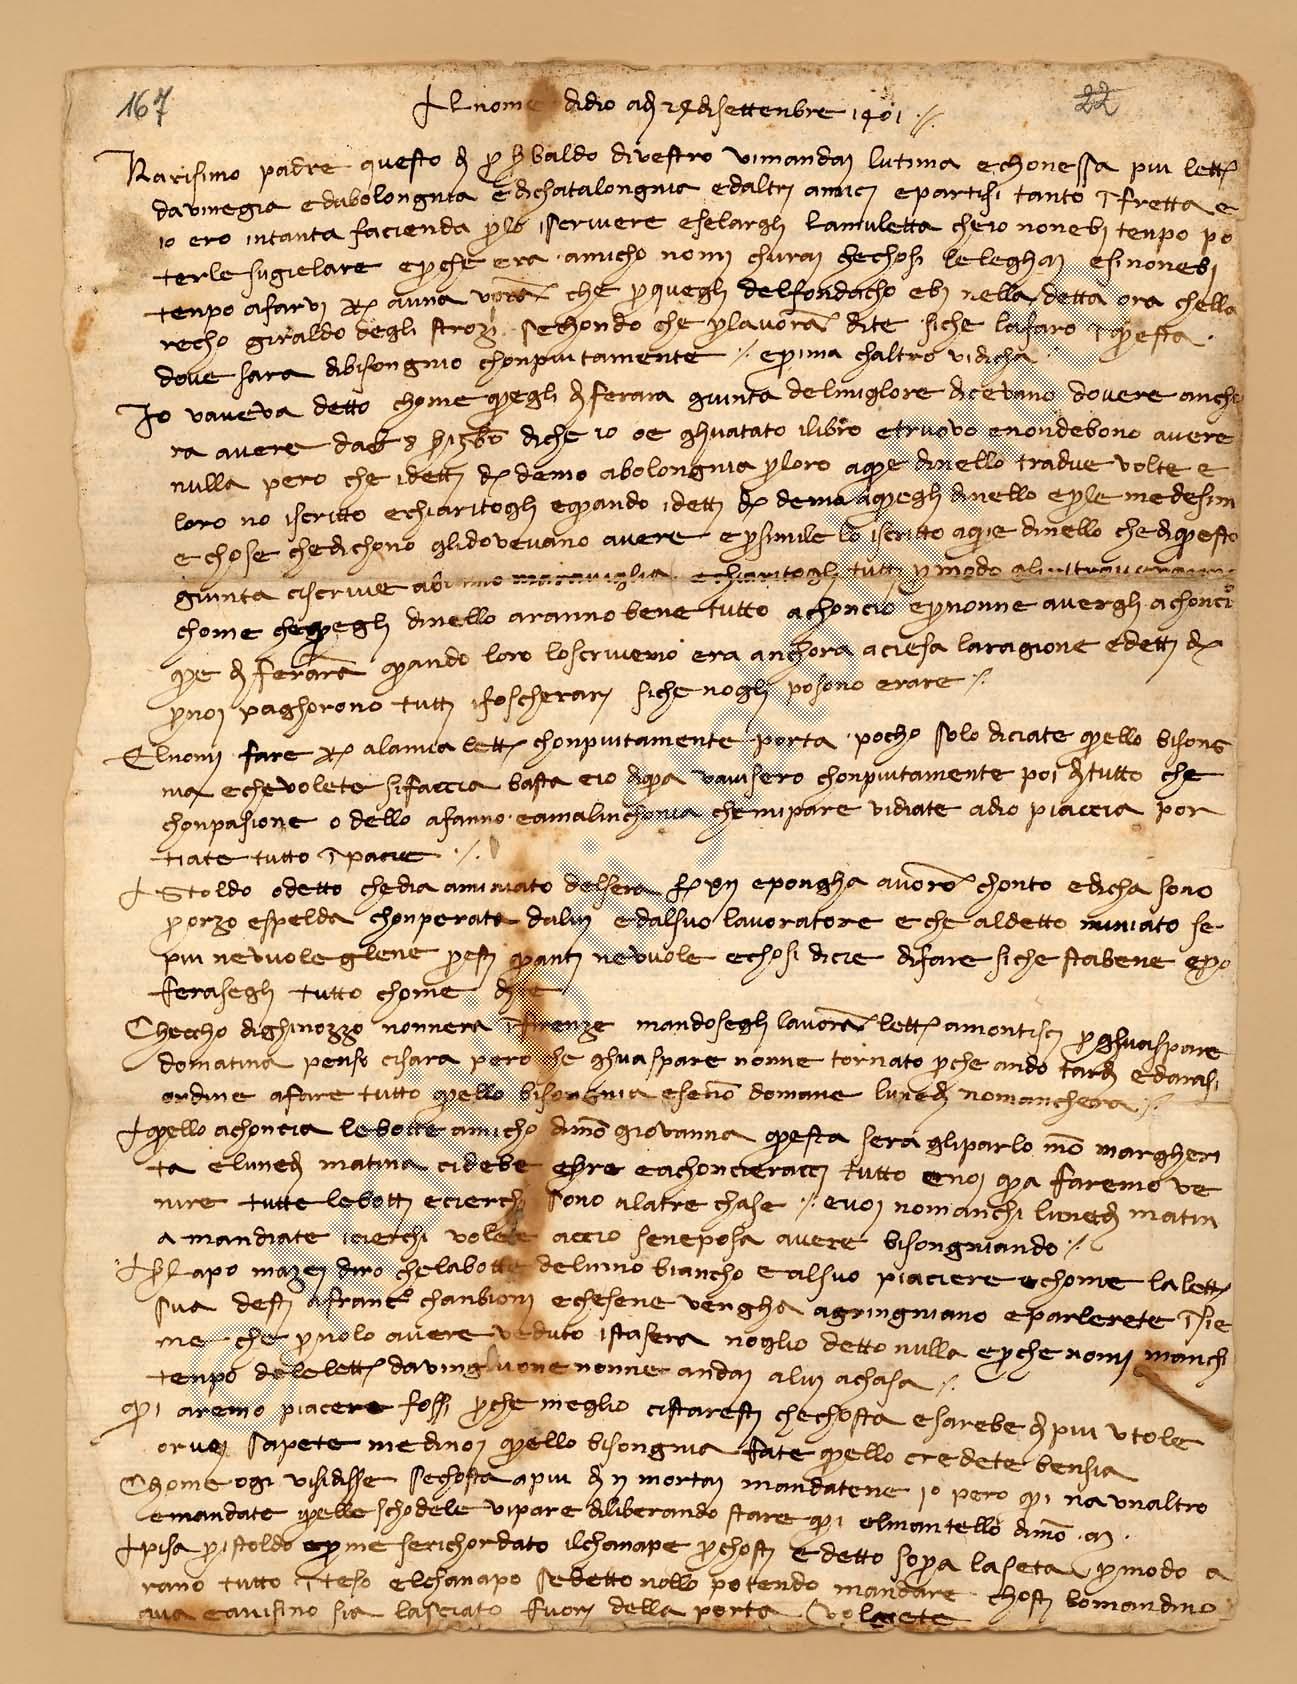 167 22
Al nome di dio adì 24 di settenbre 1401
Karisimo padre questo dì per S baldo di vestro vi mandai lutima e chonessa piu lett
da vinegia e da bolongnia e di chatalongnia e daltri amici e partisi tanto i fretta e
io ero in tanta facienda per lo iscrivere e selargli lamuletta che io non ebi tenpo po
terle sugielare e perche era amicho nomi churai che chosi le leghai e si non ebi
tenpo a farvi a una che per quegli del fondacho ebi nella detta ora chella
recho giraldo degli strozi sechondo che per lavora dite siche la faro i questa
dove sara di bisongnio chonpiutamente e prima chaltro vi dicha
Io vaveva detto chome quegli di ferara giunta del miglore dicevano dovere ancho
ra avere di che io oe ghuatato i libro e truovo e non debono avere
nulla pero che i detti demo a bolongnia per loro a que dinello tra due volte e
loro no iscritto e chiaritogli e quando i detti demo a quegli dinello e per le medesim
e chose che dichono gli dovevano avere e per simile lo iscritto a que dinello che di questo
giunta ci scrive abiamo maraviglia e chiaritogli tutti per modo
chome che quegli dinello aranno bene tutto achoncio e per nonne avergli achoncio
que di ferara quando loro lo scrivemo era anchora aciesa la ragione e detti
per noi paghorono tutti i foscherari siche no gli posono erare
El nomi fare a la mia lett chonpiutamente porta pocho solo diciate quello bisong
nia e che volete si faccia basta e io di qua vaviserò chonpiutamente poi di tutto che
chonpasione o dello afanno e amalinchonia che mi pare vi diate a dio piaccia por
tiate tutto i pacie
A Stoldo o detto che dia a miniato del sera e pongha a vora chonto e dicha sono
per orzo e spelda chonperata da lui e dal suo lavoratore e che al detto miniato se
piu ne vuole gliene presti quanti ne vuole e chosi dicie di fare siche sta bene e po
ferasegli tutto chome dite
Checho di ghinozzo nonnera i firenze mandosegli la vora lett a montisci per ghuaspare
domatina penso ci sara pero che ghuaspare nonne tornato perche ando tardi e darasi
ordine a fare tutto quello bisongnia e se no domane lunedi no manchera
A quello achoncia le botte amicho di mo giovanna questa sera gli parlo mo margheri
ta e lunedi matina ci debe esere e achoncieracci tutto e noi qua faremo ve
nire tutte le botti e cierchi sono a latre chase e voi no manchi lunedi matin
a mandiate i cierchi volete accio se ne posa avere bisongniando
A S lapo mazei diro che la botte del vino biancho e al suo piaciere e chome la lett
sua desti a franco chanbioni e che se ne vengha a gringniano e parlerete isie
me che per nolo avere veduto istasera no glio detto nulla e perche nomi manchi
tenpo de le lett da vingnone nonne andai a lui a chasa
qui aremo piacere fossi perche meglio ci staresti che chosta e sarebe di piu utole
or voi sapete me di noi quello bisongnia fate quello credete ben sia
Chome ogi vi si disse se chosta a piu di 2 mortai mandatene 1o pero qui na unaltro
e mandate quelle schodele vi pare diliberando stare qui e l mantello di mo
A pisa per istoldo e per me se richordato il chanape per chosti e detto sopra la seta per modo a
rano tutto iteso e l chanapo se detto nollo potendo mandare chosti lo mandino
qua e avisino sia lasciato fuori della porta volete